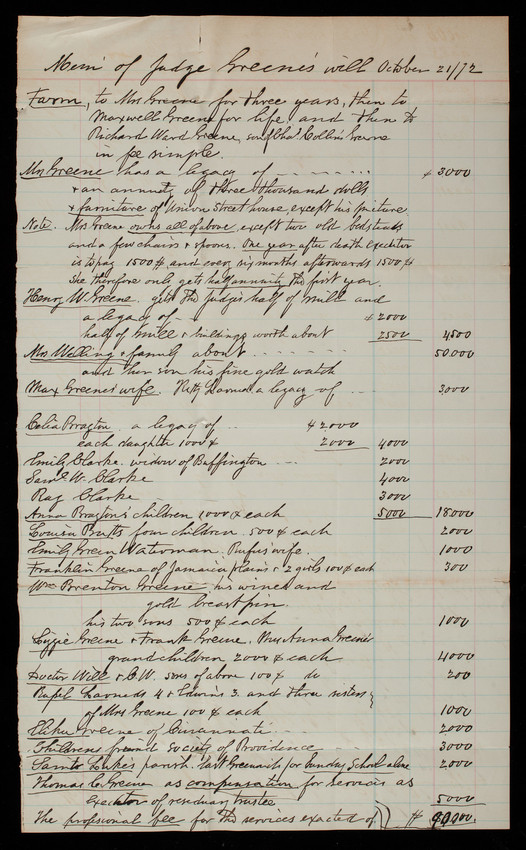 Mem of Judge Greene's will October 21/72
Farm, to Mrs Greene for three years, then to
Maxwell Greene for life and then to
Richard Ward Greene, son of Chas Collins Greene
in fee simple.
Mrs Greene has a legacy of $ 3000
+ an annuity of three thousand dolls
+ furniture of Union Street house except his picture.
Note. Mrs Greene owns all of above, except two old bedsteads
and a few chairs + spoons. One year after death executor
is to pay 1500 $ and every six months afterwards 1500 $
She therefore only gets half annuity the first year.
Henry W. Greene. gets the Judge's half of mill and
a legacy of $ 2000
half of mill + buildings worth about 2500 4500
Mrs Welling + family about 50.000
and her son his fine gold watch
Max Greene's wife. a legacy of 3000
Celia Bragton. a legacy of $ 2000
each daughter 1000 $ 2000 4000
Emily Clarke. widow of Buffington 2000
Saml W. Clarke 4000
Ray Clarke 3000
Anna Bragton's children 1000 $ each 5000 18000
Louisa four children. 500 $ each 2000
Emily Green Waterman. Rufus' wife. 1000
Franklin Greene of Jamaica plains + 2 girls 100 $ each 300
Wm Brenton Greene his wines and
gold breast pin.
his two sons 500 $ each 1000
Lizzie Greene + Frank Greene. Anna Greene's
grand children 2000 $ each 4000
Doctor Will + C. W. sons of above 100 $ do 200
4 + Edwins 3. and three sisters
of Mrs Greene 100 $ each 1000
Elihu Greene of Cincinnati 2000
Childrens friend Society of Providence 3000
Saint Luke's parish. East Greenwich for Sunday School alone 2000
Thomas C. Greene as compensation for services as
executor of residuary trustee 5000
The profesional fee for the services exacted of $